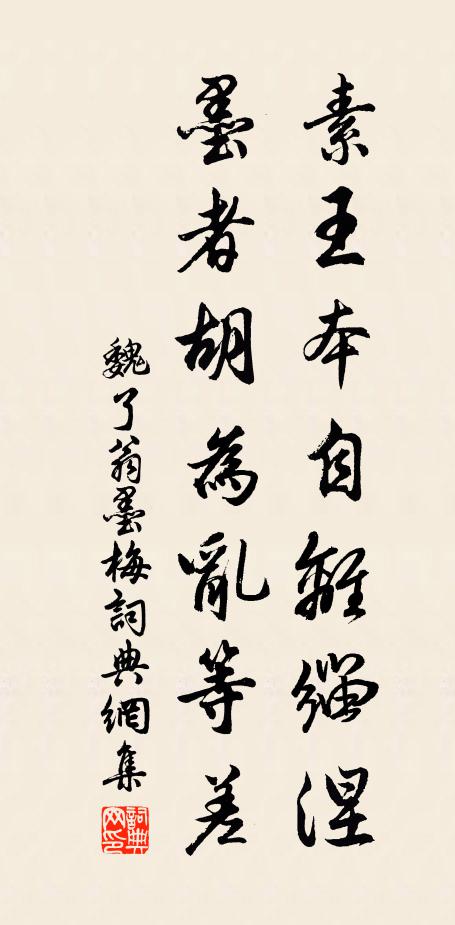 素王本自離緇涅
墨者胡為亂等差
魏了翁墨梅詞典網集
詞典
网印